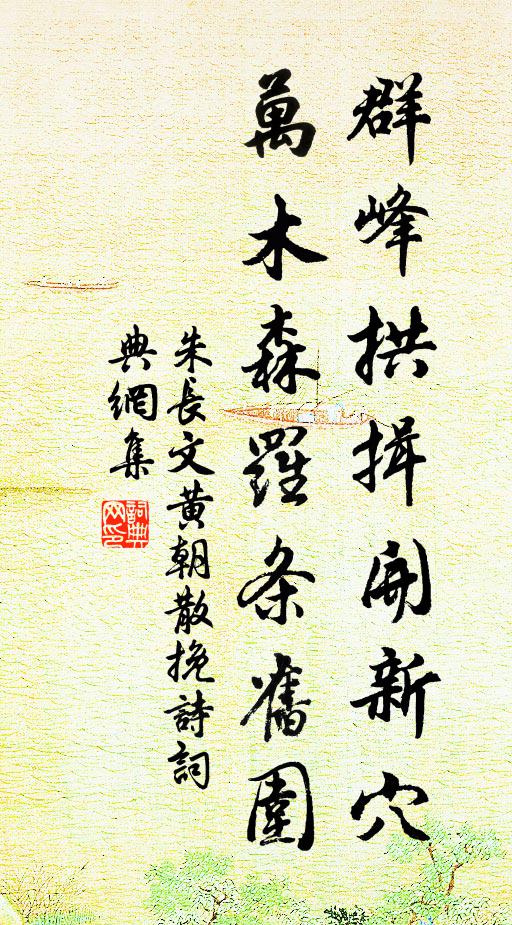 群峰拱揖開新穴
萬木森羅条舊圍
朱長文黄朝散挽詩詞
典網集
詞典
网印